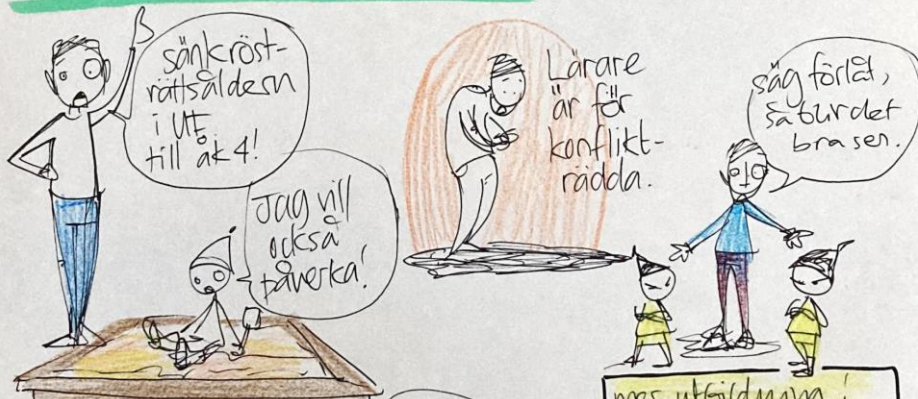 sänk röst-
rättsåldern
i UF
till åk 4!
Jag vill
också
påverka!
Lärare
är för
konflikt-
rädda.
säg förlåt,
så blir det
bra sen.
mer utbildning i